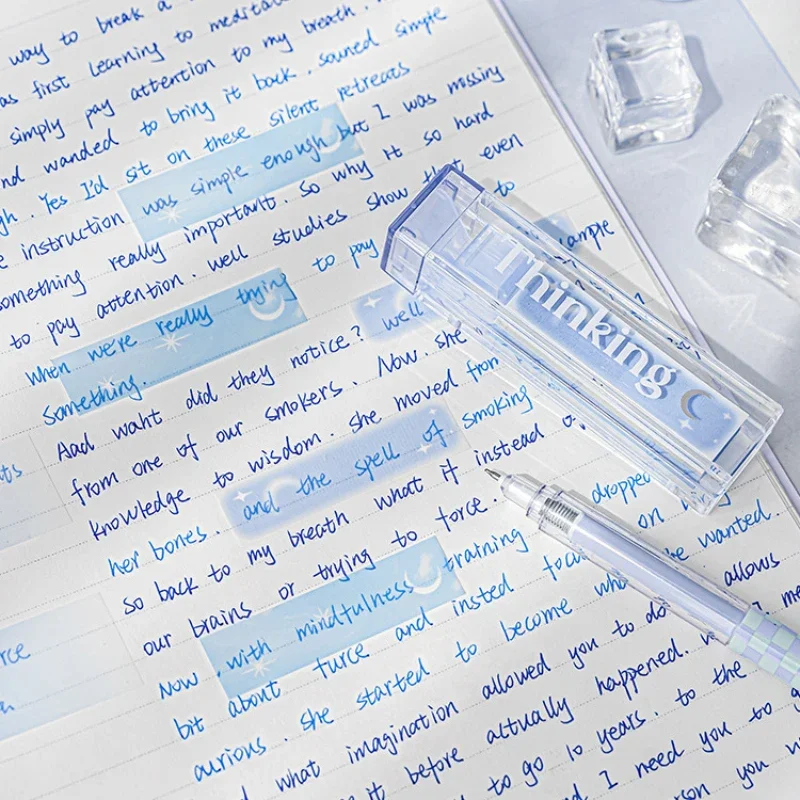 way to break a
as first learning to meditat
simply pay attention to my breath.
nd wanded to bring it back. souned simple
gh. Yes I'd sit on these silent retreats
was simple enough but I was missing
e instruction really important. So why it so hard
something attention. well studies show that even
to pay to pay to
when we're really trying ample
something. well
Aad waht did they notice?
from one of our smokers. Now. she
knowledge to wisdom. she moved from
her bones. and the spell of smoking
so back to my breath what it instead o
our brains or trying to force. dropped
Now. with mindfulness training on wanted.
bit about turce and insted focu
aurious. she started to become wha allows
d what imagination allowed you to do
it before actually happened.
to go 10 years. to the
d I need you to g
son you
Thinking
ts
rce